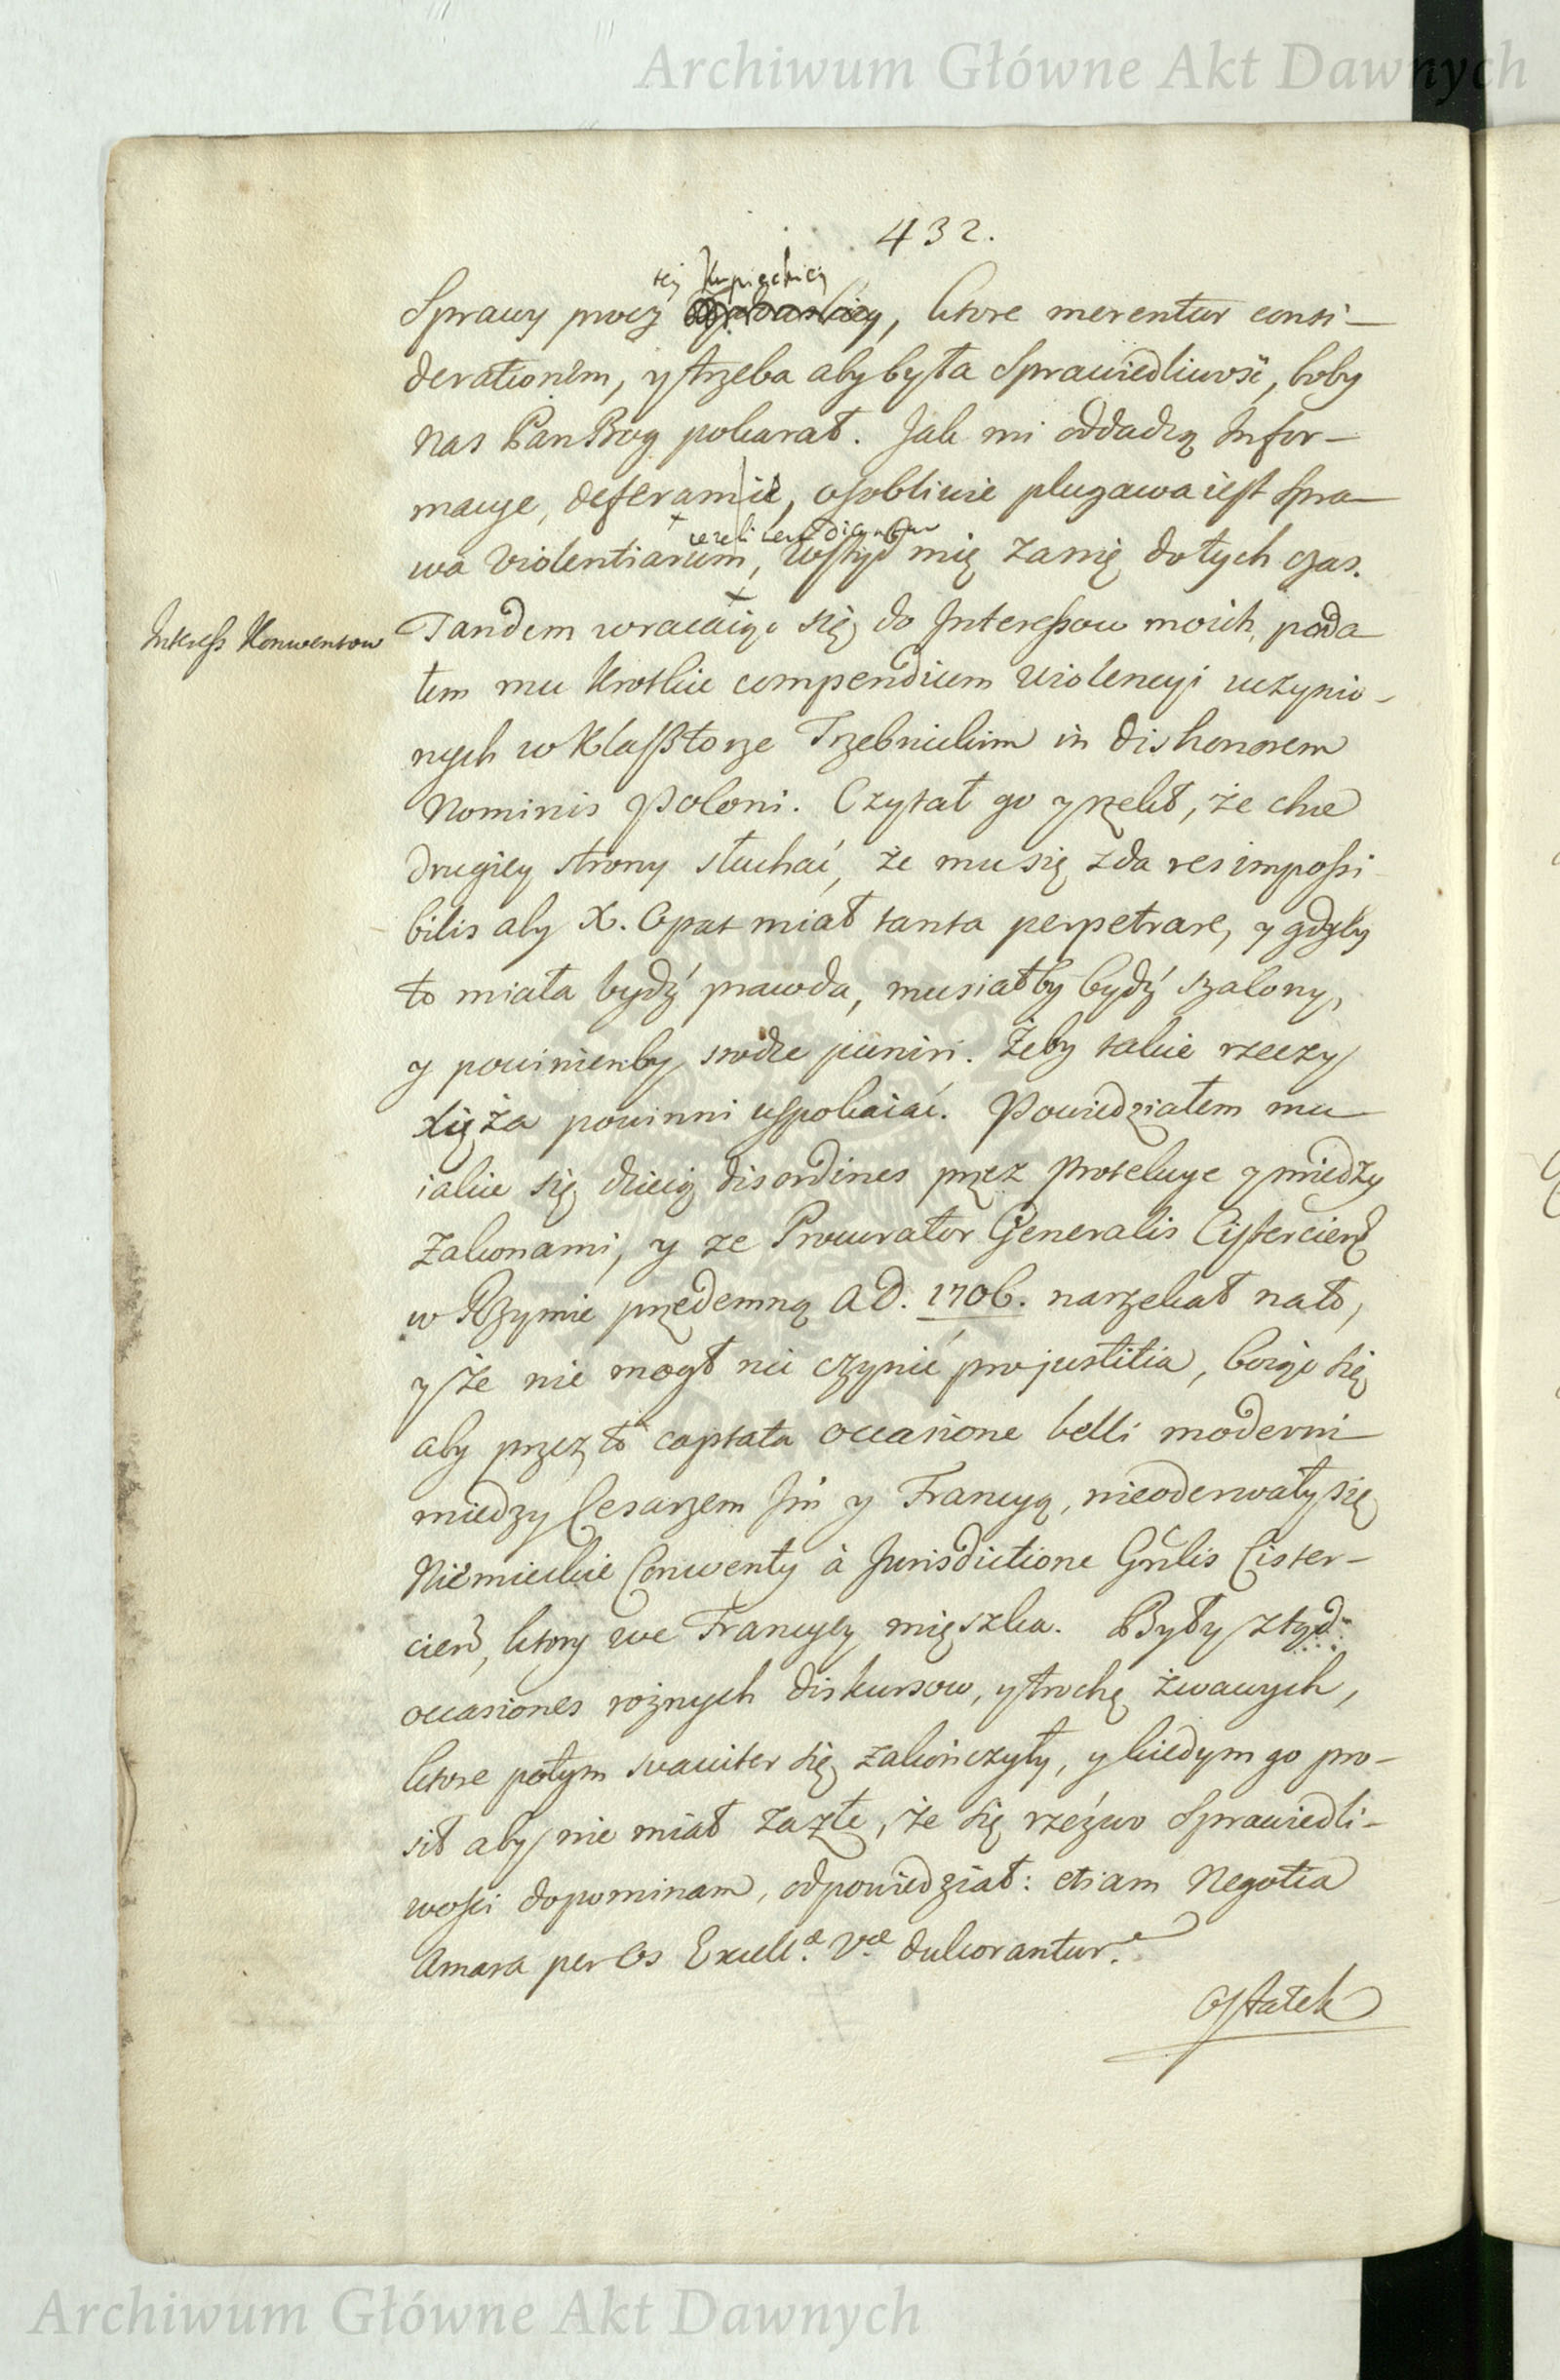 Archiwum Główne Akt Dawnych
432.
tej Kupieckiey
Sprawy procz, ktore merentur consi-
derationem, y trzeba aby była Sprawiedliwość, boby
nas Pan Bog pokarał. Jak mi oddadzą Infor-
macye, deferam ie, osobliwie plugawa iest spra-
wa violentiarum, wstyd mię za nię do tych czas.
Interess Konwentow
Tandem wracaiąc się do Interessow moich, poda
łem mu krotkie compendium violencyi uczynio-
nych w Klasztorze Trzebnickim in dishonorem
Nominis Poloni. Czytał go y rzekł, że chce
drugiey strony słuchać, że mu się zda res impossi
bilis aby X. Opat miał tanta perpetrare, y gdyby
to miała bydź prawda, musiałby bydź szalony,
y powinienby srodze puniri. Żeby takie rzeczy
xięża powinni uspokaiać. Powiedziałem mu
iakie się dzieią disordines przez protekcye y miedzy
Zakonami, y ze Procurator Generalis Cistercien̄
w Rzymie przedemną A D. 1706. narzekał na to,
y że nie mogł nic czynić pro justitia, boiąc się
aby przez to captata occasione belli moderni
miedzy Cesarzem Jm̄ y Francyą, nieoderwały się
Niemieckie Conwenty à Jurisdictione Gn̄lis Cister-
cien̄, ktory we Francyey mięszka. Były ztąd
occasiones rożnych diskursow, y trochę żwawych,
ktore potym suaviter się zakończyły, y kiedym go pro-
sił aby nie miał za złe, że się rzeźwo Sprawiedli-
wości dopominam, odpowiedział: etiam Negotia
Amara per Os Excell.æ V.æ dulcorantur.
Ostatek
Archiwum Główne Akt Dawnych